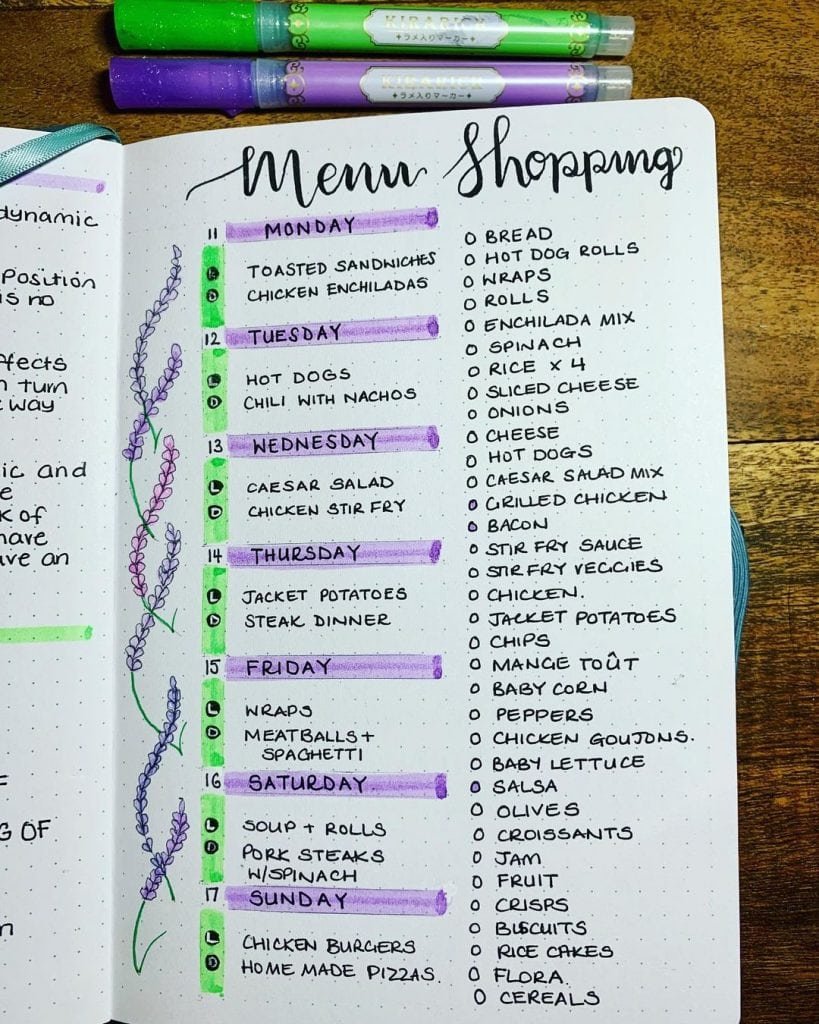 KIRARICK
✦ラメ入りマーカー✦
KIRARICK
✦ラメ入りマーカー✦
dynamic
Position
is no
turn
way
ic and
k of
have
an
G OF
Menu
11 MONDAY
L TOASTED SANDWICHES
D CHICKEN ENCHILADAS
12 TUESDAY
L HOT DOGS
D CHILI WITH NACHOS
13 WEDNESDAY
L CAESAR SALAD
D CHICKEN STIR FRY
14 THURSDAY
L JACKET POTATOES
D STEAK DINNER
15 FRIDAY
L WRAPS
D MEATBALLS +
SPAGHETTI
16 SATURDAY
L SOUP + ROLLS
D PORK STEAKS
W/SPINACH
17 SUNDAY
L CHICKEN BURGERS
D HOME MADE PIZZAS.
Shopping
BREAD
HOT DOG ROLLS
WRAPS
ROLLS
ENCHILADA MIX
SPINACH
RICE x 4
SLICED CHEESE
ONIONS
CHEESE
HOT DOGS
CAESAR SALAD MIX
GRILLED CHICKEN
BACON
STIR FRY SAUCE
STIR FRY VEGGIES
CHICKEN.
JACKET POTATOES
CHIPS
MANGE TOÛT
BABY CORN
PEPPERS
CHICKEN GOUJONS.
BABY LETTUCE
SALSA
OLIVES
CROISSANTS
JAM
FRUIT
CRISPS
BISCUITS
RICE CAKES
FLORA
CEREALS